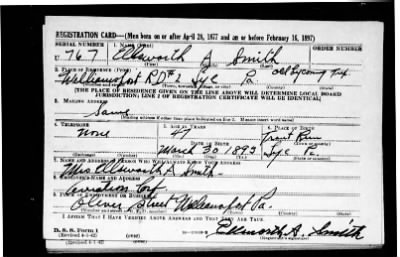 REGISTRATION CARD—(Men born on or after April 28, 1877 and on or before February 16, 1897)
SERIAL NUMBER 1. NAME (Print) ORDER NUMBER
U 767 Ellsworth A Smith
2. PLACE OF RESIDENCE (Print)
Williamsport RD#2 Lyc Pa. Old Lycoming Twp.
[THE PLACE OF RESIDENCE GIVEN ON THE LINE ABOVE WILL DETERMINE LOCAL BOARD
JURISDICTION; LINE 2 OF REGISTRATION CERTIFICATE WILL BE IDENTICAL]
3. MAILING ADDRESS
Same
[Mailing address if other than place indicated on line 2. If same insert word same]
4. TELEPHONE 5. AGE IN YEARS 6. PLACE OF BIRTH
None Trout Run
DATE OF BIRTH
March 30 1893 Lyc Pa.
7. NAME AND ADDRESS OF PERSON WHO WILL ALWAYS KNOW YOUR ADDRESS
Mrs Ellsworth A. Smith
8. EMPLOYER'S NAME AND ADDRESS
Aviation Corp
9. PLACE OF EMPLOYMENT OR BUSINESS
Street Williamsport Pa.
I AFFIRM THAT I HAVE VERIFIED ABOVE ANSWERS AND THAT THEY ARE TRUE.
D. S. S. Form 1
(Revised 4-1-42) (over)
Ellsworth A. Smith